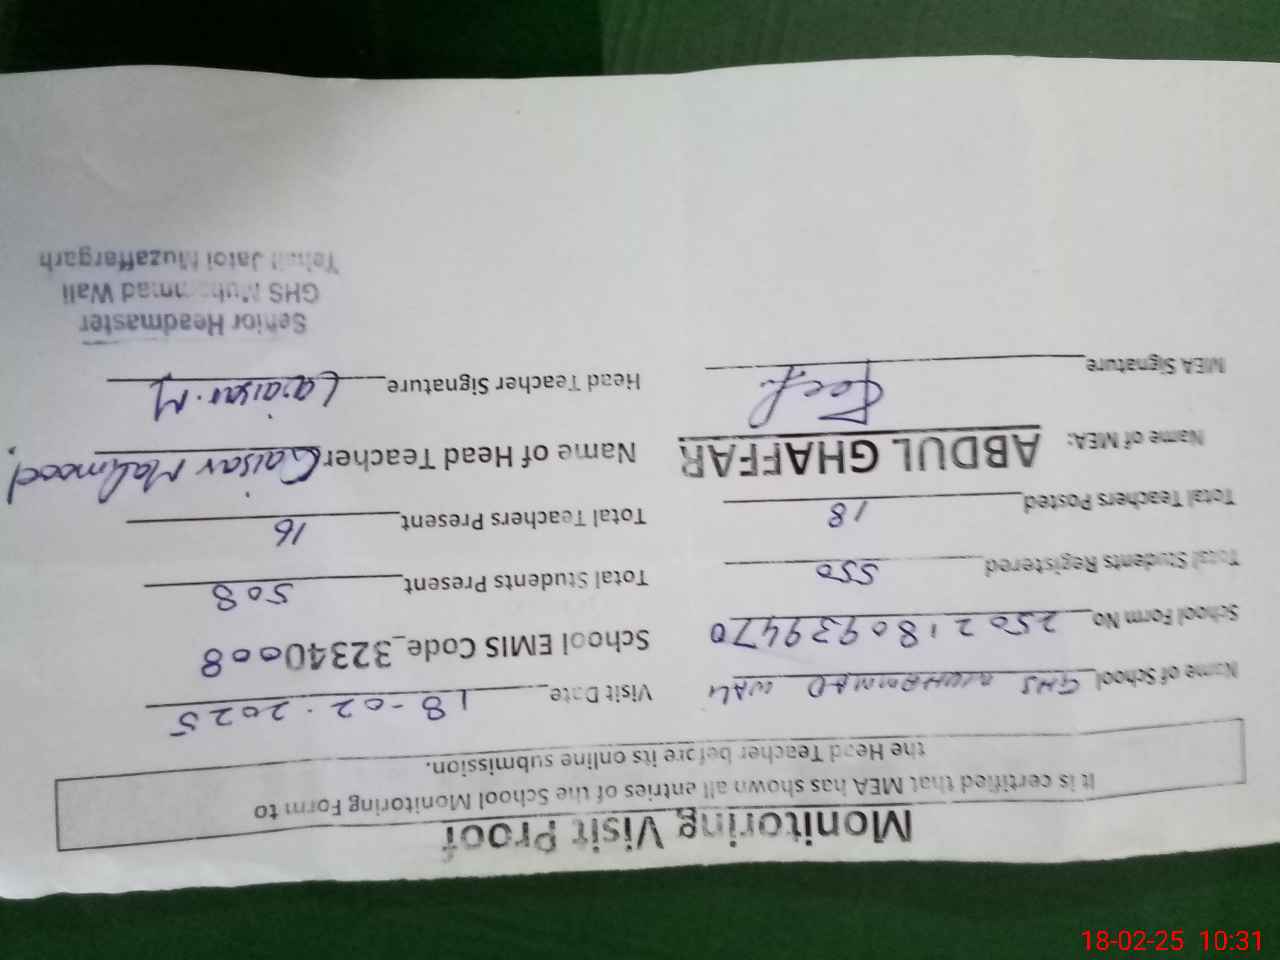 Monitoring Visit Proof
It is certified that MEA has shown all entries of the School Monitoring Form to
the Head Teacher before its online submission.
Name of School GHS MUHAMMAD WALI Visit Date 18-02-2025
School Form No 2502180939470 School EMIS Code_32340008
Total Students Registered 550 Total Students Present 508
Total Teachers Posted 18 Total Teachers Present 16
Name of MEA: ABDUL GHAFFAR Name of Head Teacher Qaisar Mahmood
MEA Signature Head Teacher Signature Qaisar.M
Senior Headmaster
GHS Muhammad Wali
Tehsil Jatoi Muzaffargarh
18-02-25 10:31